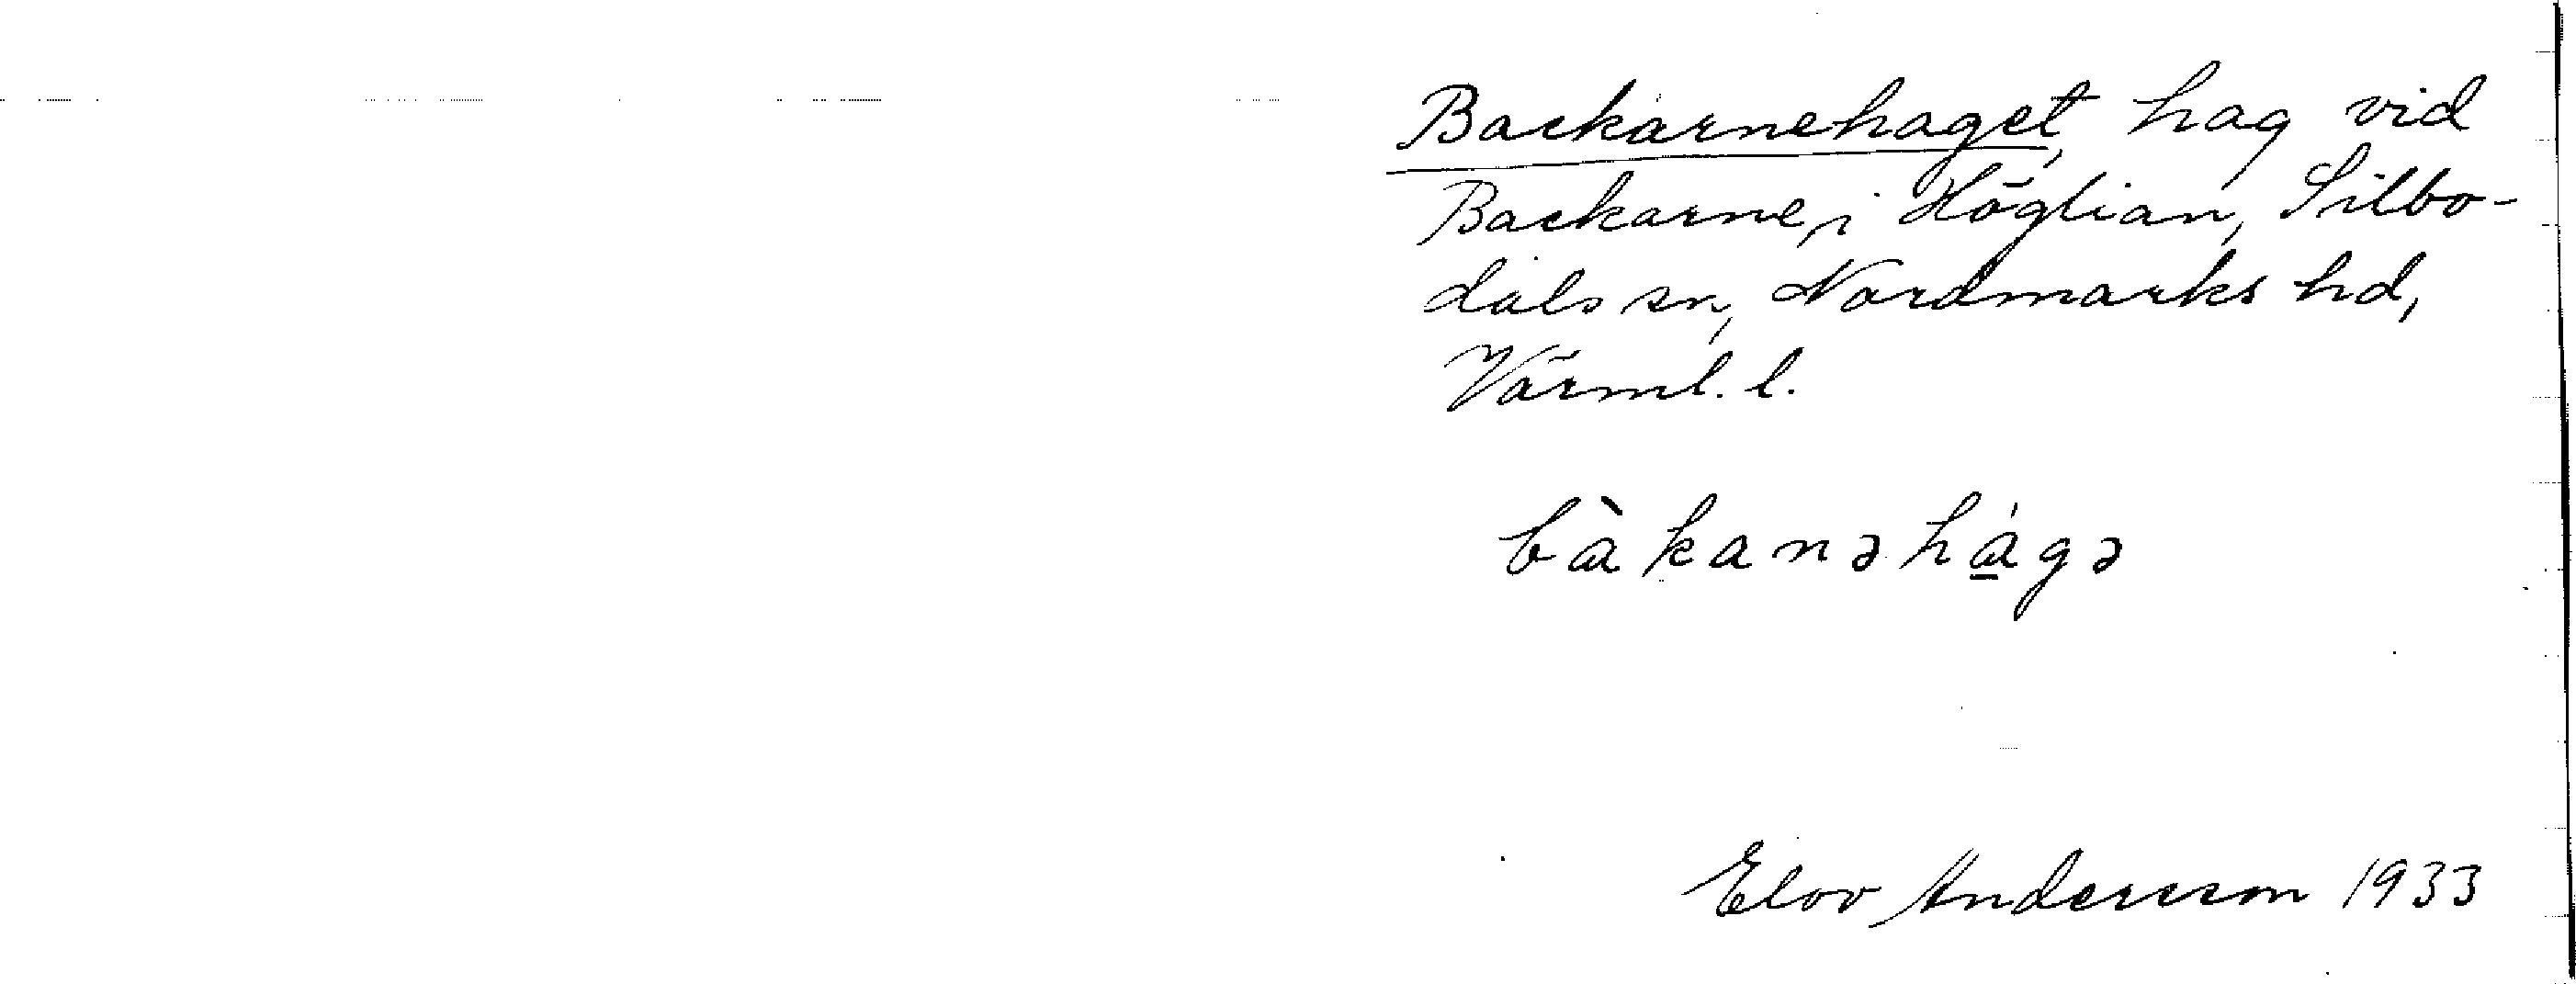 Backarnehaget, hag vid
Backarne, i Höglian, Silbo-
dals sn, Nordmarks hd,
Värml. l.
bàkanəhágə
Elov Andersson 1933